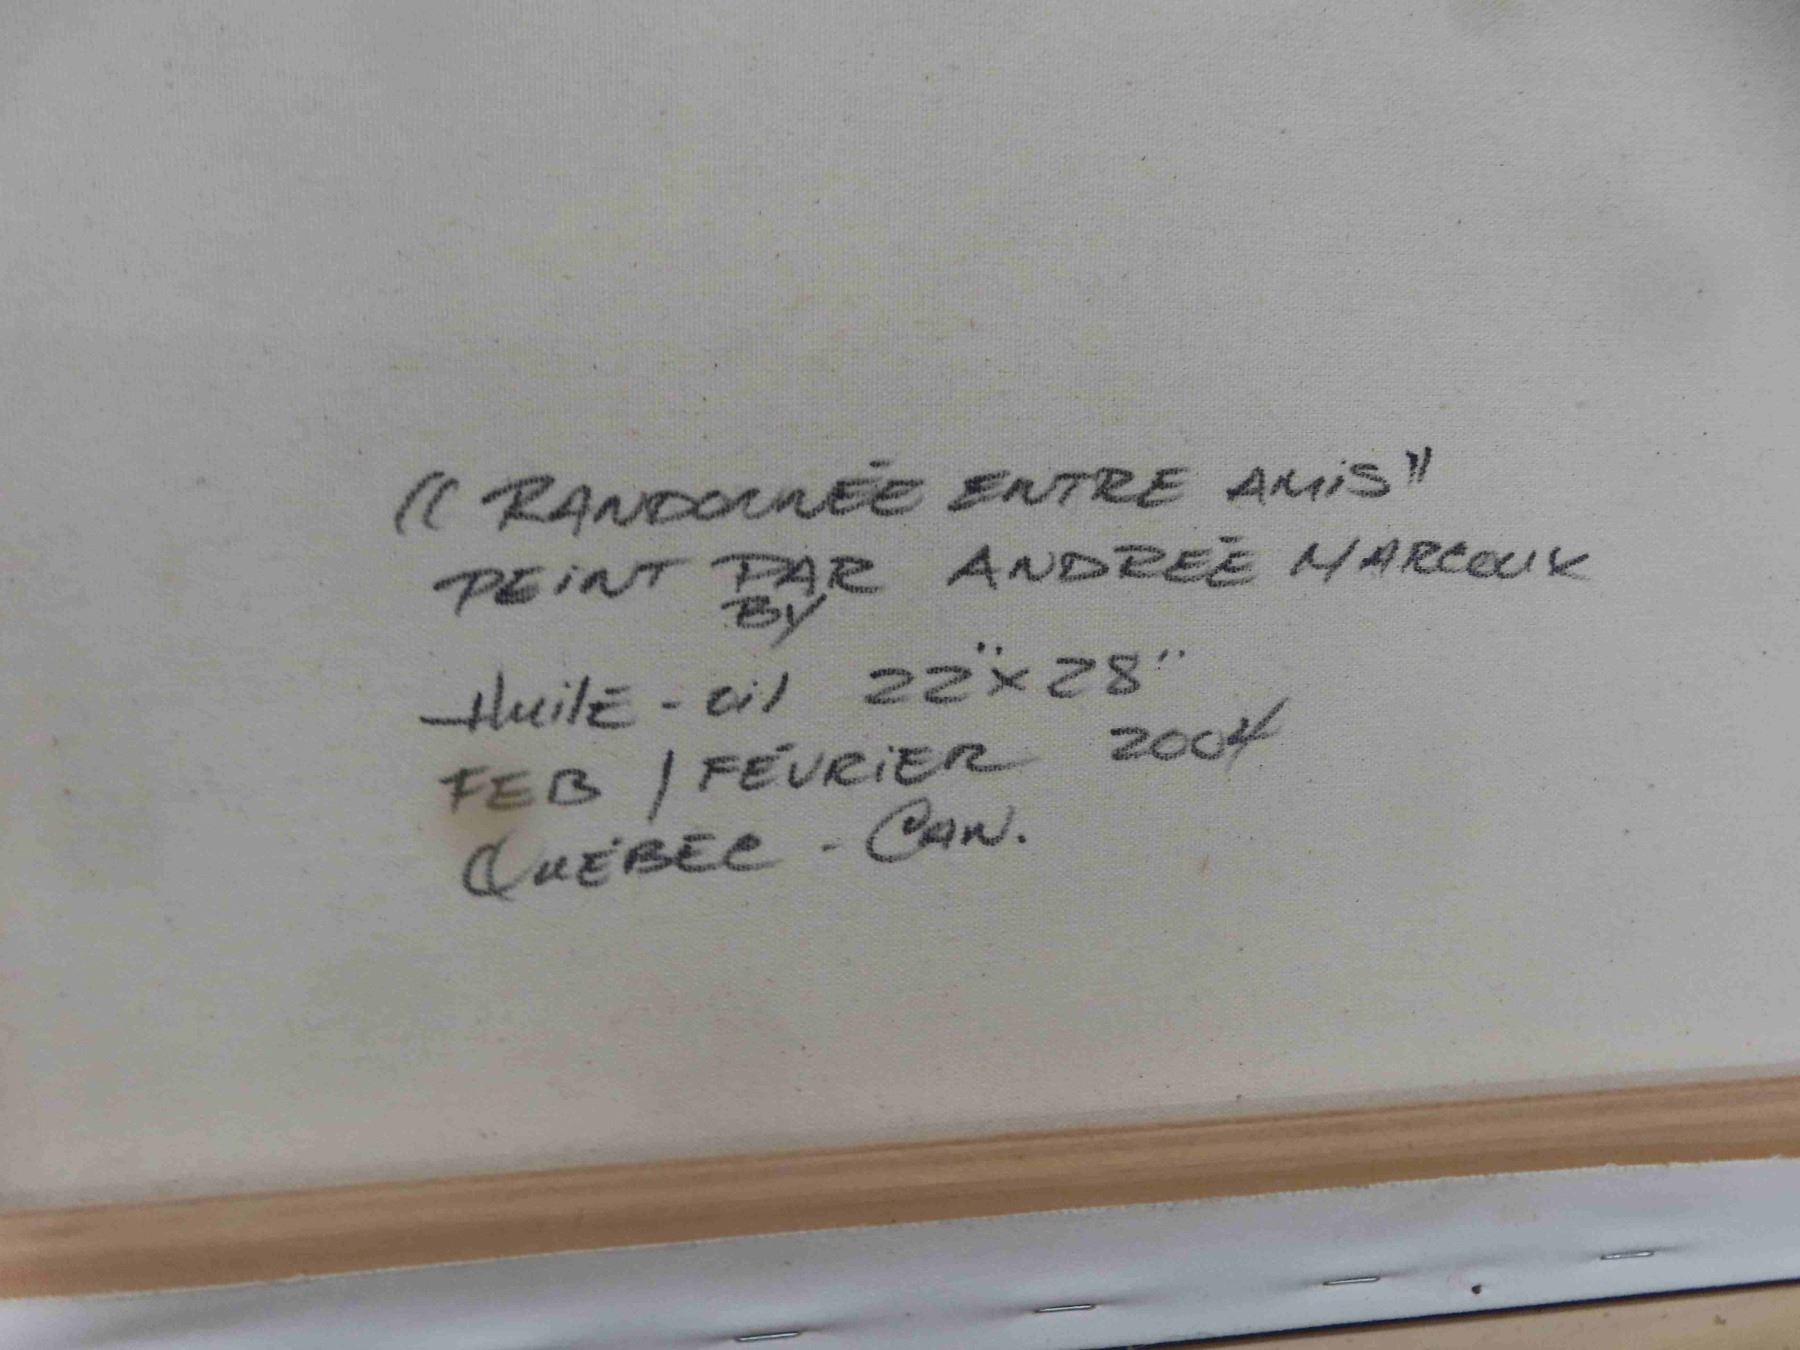 "RANDONNÉE ENTRE AMIS"
PEINT PAR ANDRÉE MARCOUX
BY
HUILE - OIL 22" X 28"
FEB / FÉVRIER 2004
QUÉBEC - CAN.